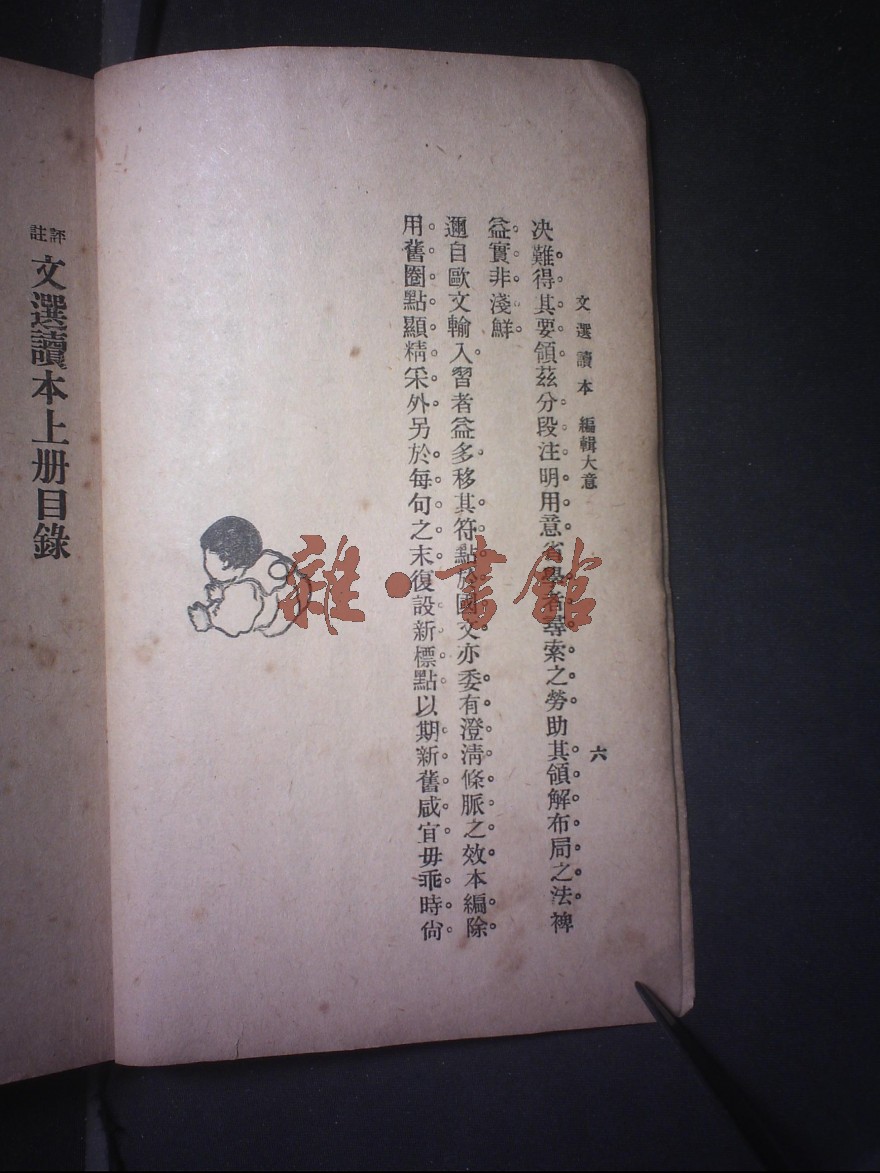 文選讀本 編輯大意 六
決難得其要領茲分段注明用意省學者尋索之勞助其領解布局之法裨
益實非淺鮮
邇自歐文輸入習者益多移其符點於國文亦委有澄清條脈之效本編除
用舊圈點顯精采外另於每句之末復設新標點以期新舊咸宜毋乖時尙
評註 文選讀本上册目錄
雜·書館